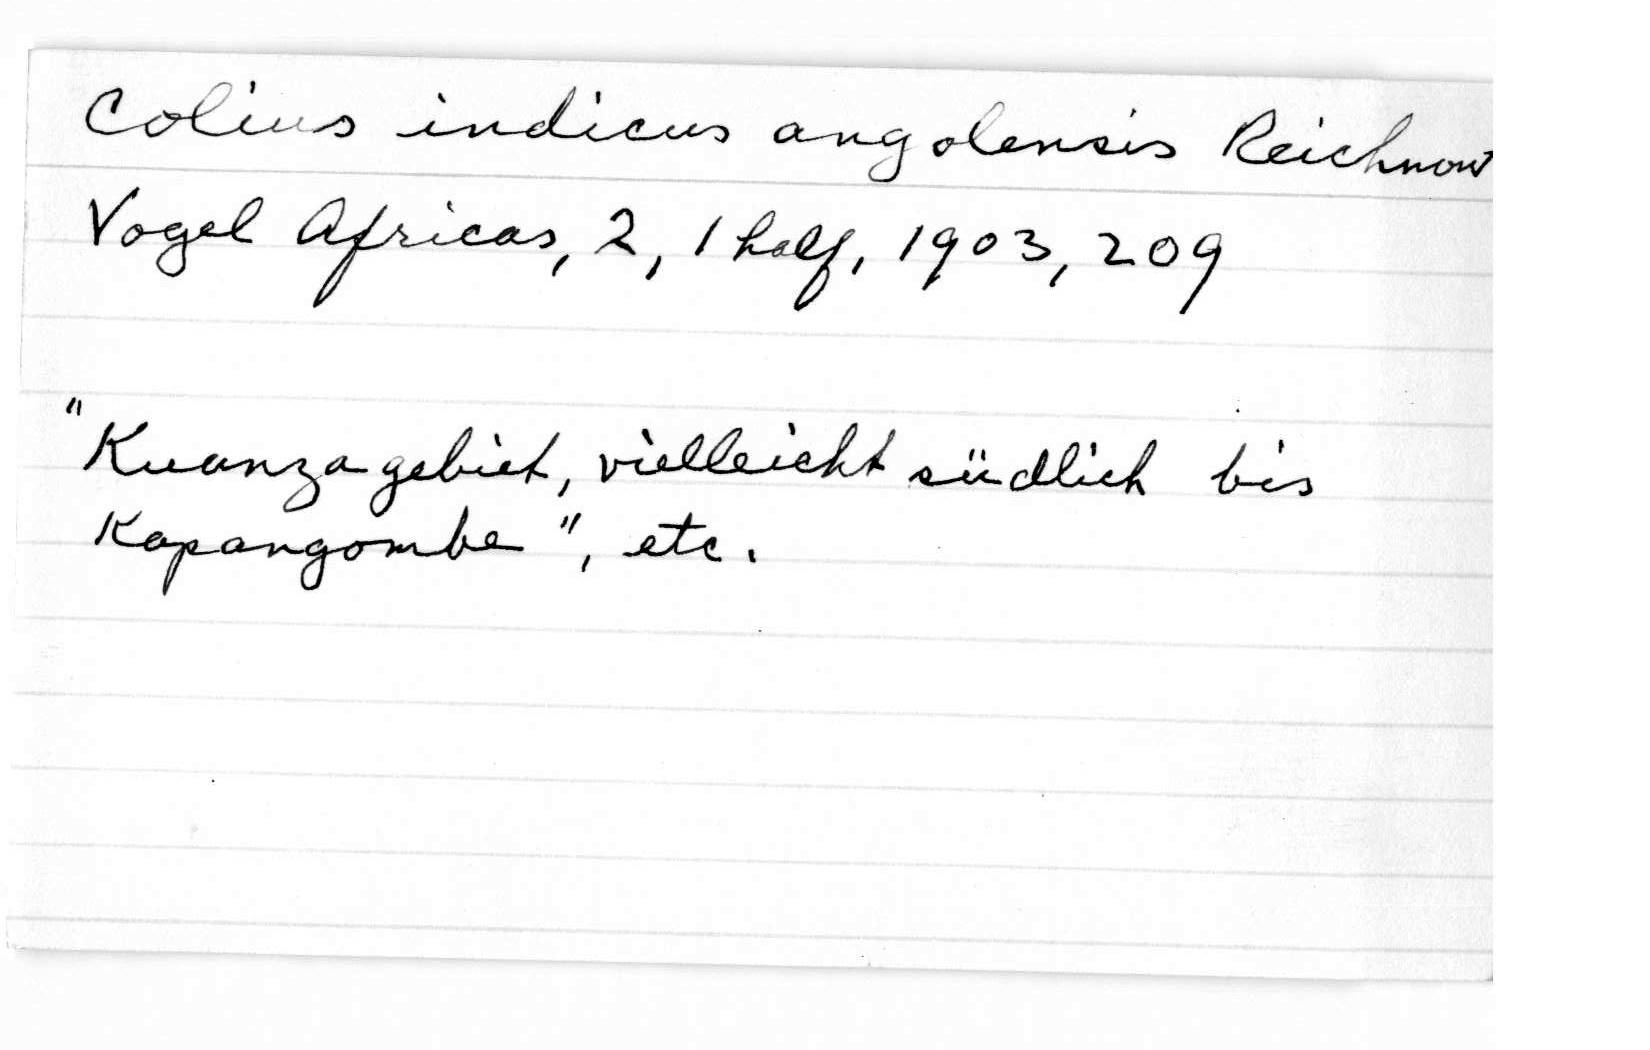 Colius indicus angolensis Reichnow
Vogel Africas, 2, 1 half, 1903, 209
"Kuanzagebiet, vielleicht südlich bis
Kapangombe", etc.